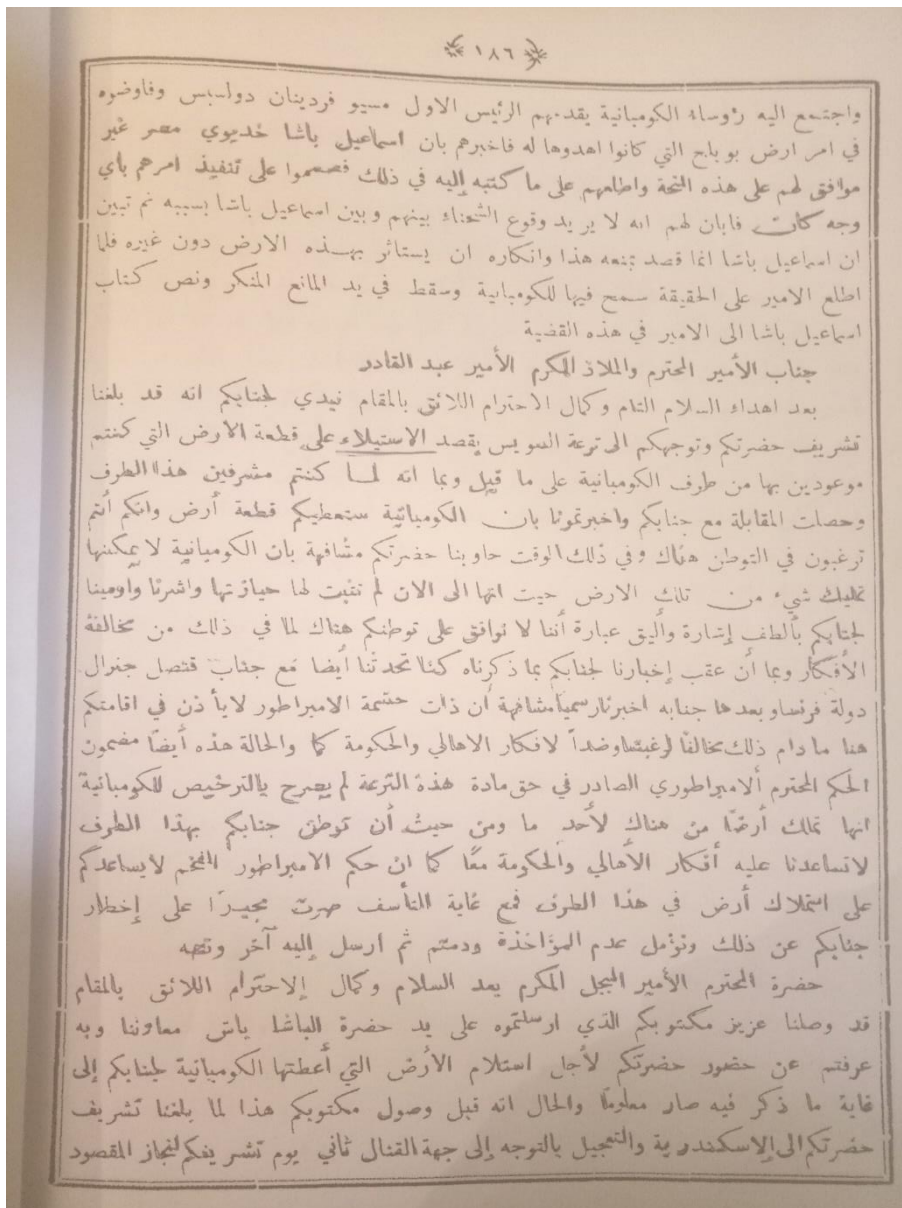 ﴿ ١٨٦ ﴾
واجتمع اليه رؤساء الكومبانية يقدمهم الرئيس الاول مسيو فردينان دولسبس وفاوضوه
في امر ارض بو بلح التي كانوا اهدوها له فاخبرهم بان اسماعيل باشا خديوي مصر غير
موافق لهم على هذه المنحة واطلعهم على ما كتبه إليه في ذلك فصمموا على تنفيذ امرهم بأي
وجه كان فابان لهم انه لا يريد وقوع الشحناء بينهم وبين اسماعيل باشا بسببه ثم تبين
ان اسماعيل باشا انما قصد بمنعه هذا وانكاره ان يستاثر بهذه الارض دون غيره فلما
اطلع الامير على الحقيقة سمح فيها للكومبانية وسقط في يد المانع المنكر ونص كتاب
اسماعيل باشا الى الامير في هذه القضية
جناب الأمير المحترم والملاذ المكرم الأمير عبد القادر
بعد اهداء السلام التام وكمال الاحترام اللائق بالمقام نبدي لجنابكم انه قد بلغنا
تشريف حضرتكم وتوجهكم الى ترعة السويس بقصد الاستيلاء على قطعة الأرض التي كنتم
موعودين بها من طرف الكومبانية على ما قيل وبما انه لما كنتم مشرفين هذا الطرف
وحصلت المقابلة مع جنابكم واخبرتمونا بان الكومبانية ستعطيكم قطعة أرض وانكم أنتم
ترغبون في التوطن هناك وفي ذلك الوقت جاوبنا حضرتكم مشافهة بان الكومبانية لا يمكنها
تمليك شيء من تلك الارض حيث انها الى الان لم تثبت لها حيازتها واشرنا وأومينا
لجنابكم بألطف إشارة وأليق عبارة أننا لا نوافق على توطنكم هناك لما في ذلك من مخالفة
الأفكار وبما أن عقب إخبارنا لجنابكم بما ذكرناه كنا تحدثنا أيضا مع جناب قنصل جنرال
دولة فرنسا وبعدها جنابه اخبرنا رسميا مشافهة أن ذات حشمة الامبراطور لا يأذن في اقامتكم
هنا ما دام ذلك مخالفا لرغبتنا وضداً لافكار الاهالي والحكومة كما والحالة هذه أيضاً مضمون
الحكم المحترم ألامبراطوري الصادر في حق مادة هذه الترعة لم يصرح بالترخيص للكومبانية
انها تملك أرضًا من هناك لأحد ما ومن حيث أن توطن جنابكم بهذا الطرف
لا تساعدنا عليه أفكار الأهالي والحكومة معًا كما ان حكم الامبراطور المفخم لا يساعدكم
على استملاك أرض في هذا الطرف فمع غاية التأسف صرت مجبرًا على إخطار
جنابكم عن ذلك ونؤمل عدم المؤاخذة ودمتم ثم ارسل إليه آخر ونصه
حضرة المحترم الأمير المبجل المكرم بعد السلام وكمال الاحترام اللائق بالمقام
قد وصلنا عزيز مكتوبكم الذي ارسلتموه على يد حضرة الباشا باش معاوننا وبه
عرفتم عن حضور حضرتكم لأجل استلام الأرض التي أعطتها الكومبانية لجنابكم إلى
غاية ما ذكر فيه صار معلومًا والحال انه قبل وصول مكتوبكم هذا لما بلغنا تشريف
حضرتكم الى الاسكندرية والتعجيل بالتوجه إلى جهة القنال ثاني يوم تشريفكم لنجاز المقصود